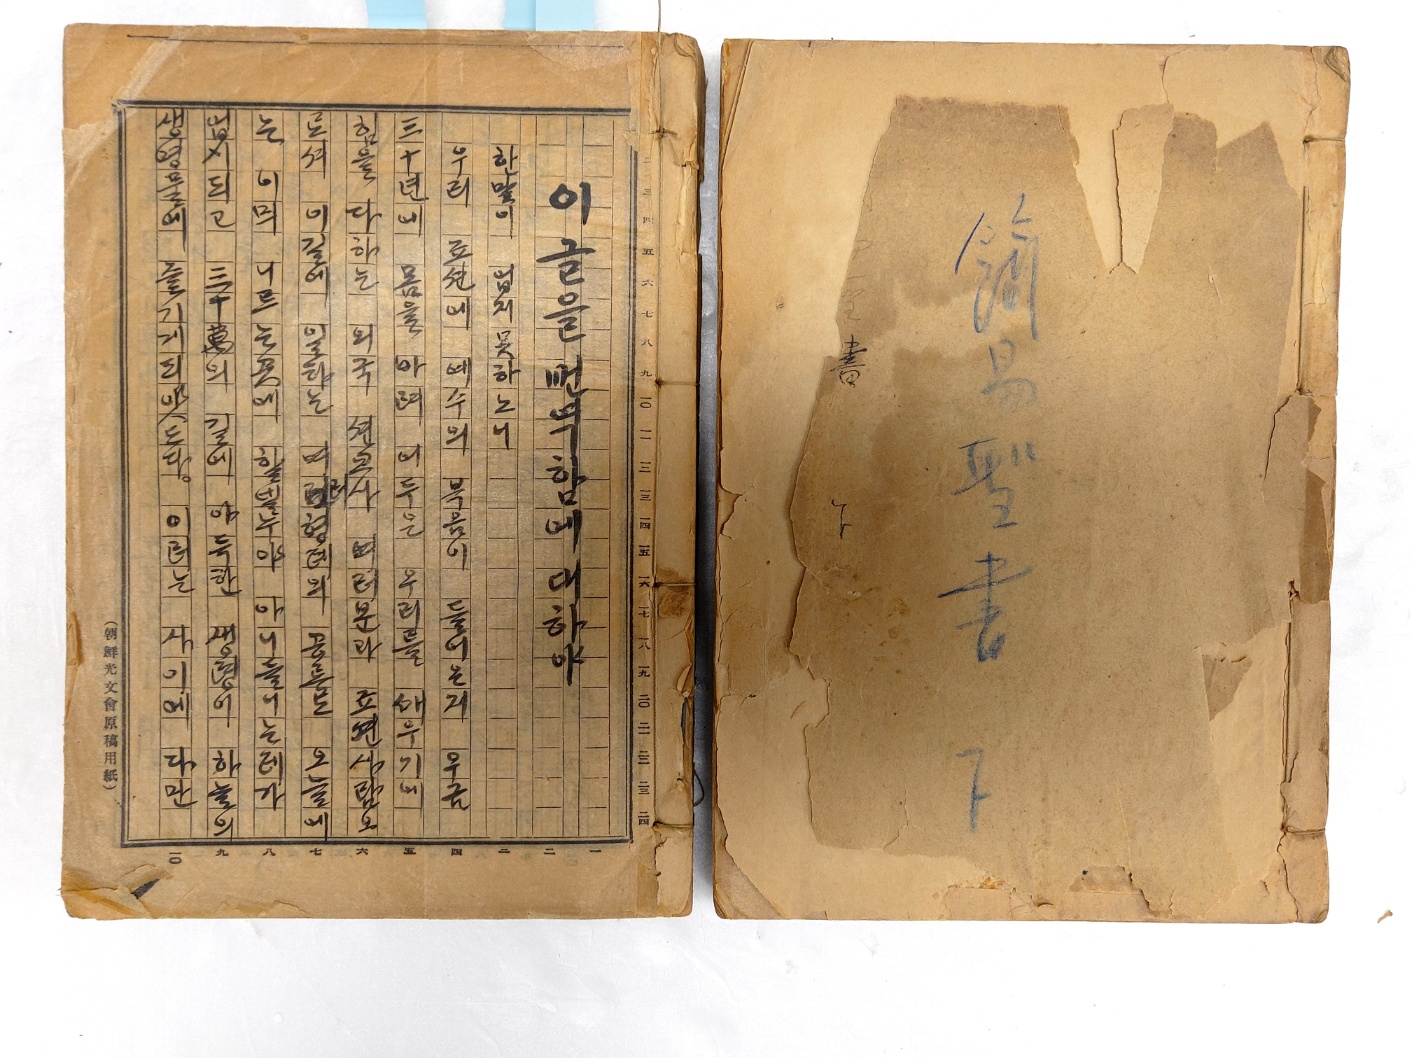 이글을번역함에대하야
한말이 업지못하노니
우리 죠션에 예수의 복음이 들어온지 우금
三十년에 몸을 바려 어두운 우리를 깨우기에
힘을 다하는 외국 션교사 여러분과 죠션사람으
로셔 이길에 일하는 여러형뎨의 공들도 오늘에
는 이믜 니르는곳에 할넬누야 아니들니는데가
업시되고 三十萬의 길에 아득한 생령이 하늘의
생명품에 들기게되야스되 이러는 사이에 다만
一 二 三 四 五 六 七 八 九 一〇
三 四 五 六 七 八 九 一〇 一一 一二 一三 一四 一五 一六 一七 一八 一九 二〇 二一 二二 二三 二四
(朝鮮光文會原稿用紙)
簡易聖書 下
書 下